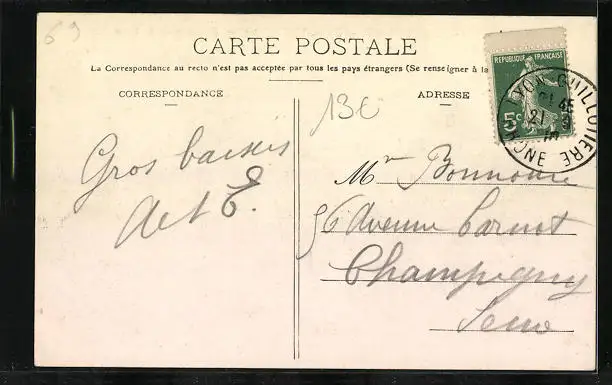 69
CARTE POSTALE
La Correspondance au recto n'est pas acceptée par tous les pays étrangers (Se renseigner à la
CORRESPONDANCE
ADRESSE
13€
REPUBLIQUE FRANÇAISE
5c
LYON GUILLOTIERE
RHONE
Gros baisers
A et E.
Mr Bonnoure
56 Avenue Carnot
Champigny
Seine